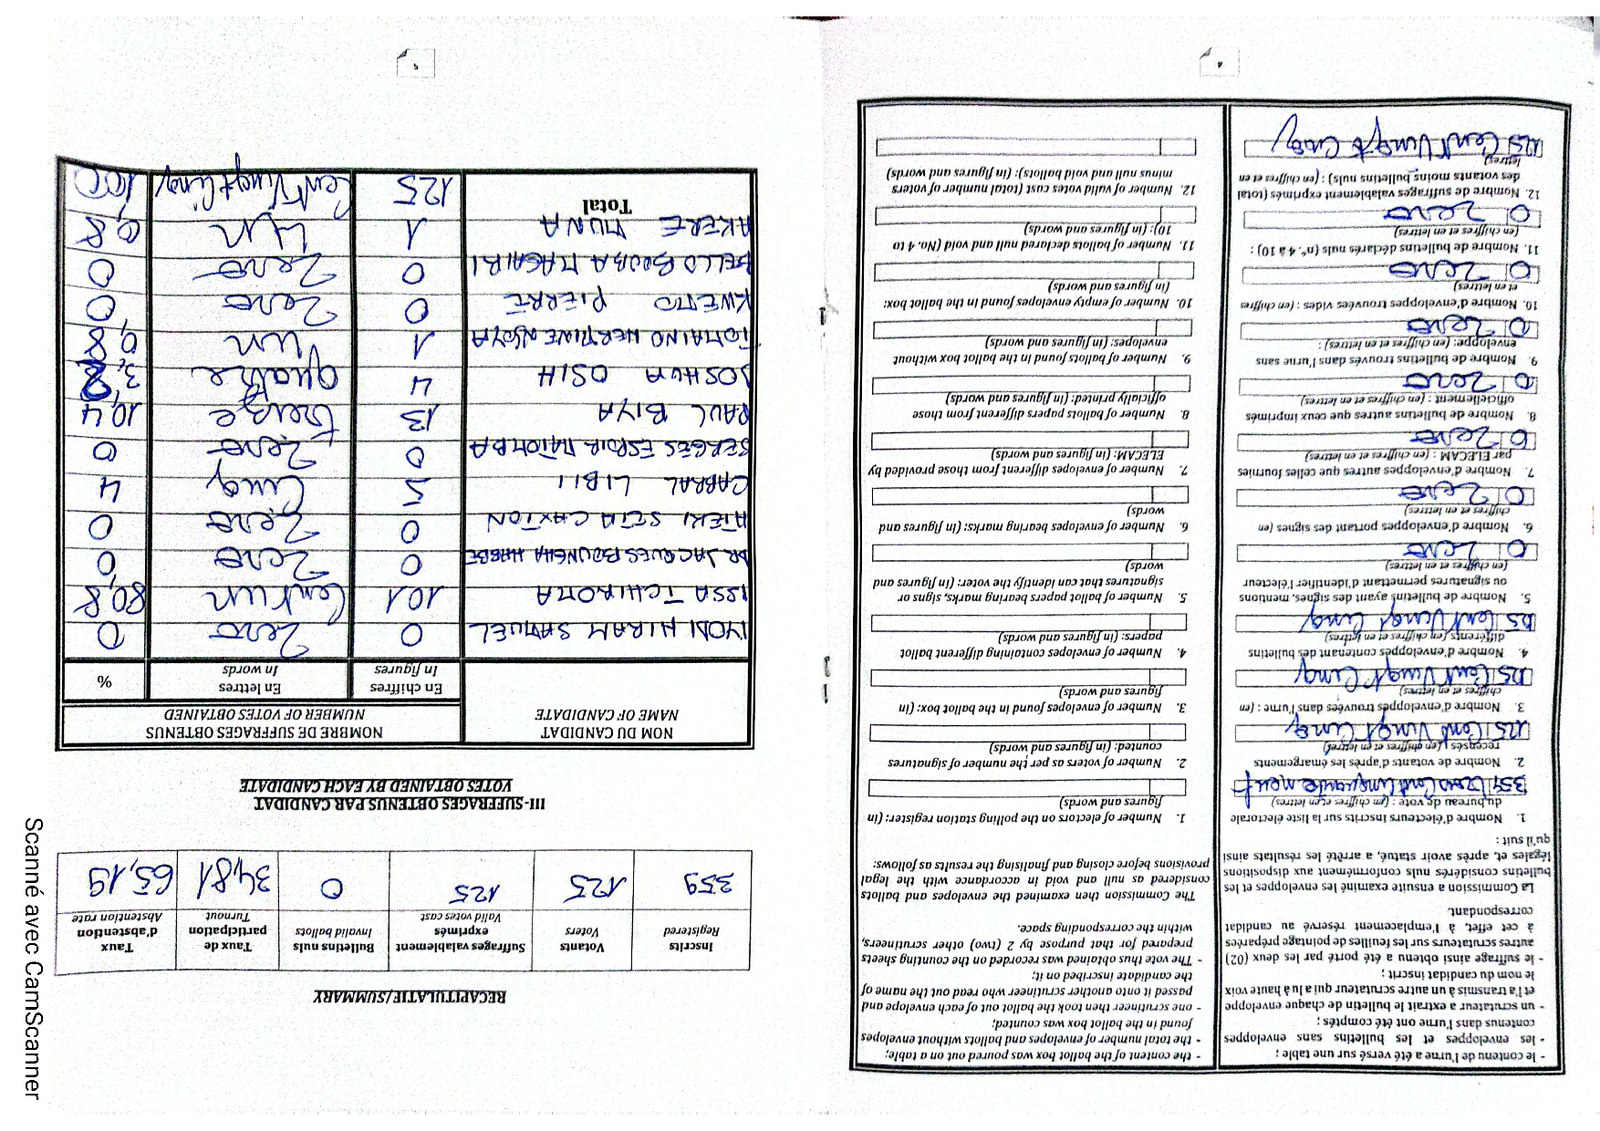 - le contenu de l'urne a été versé sur une table ;
- les enveloppes et les bulletins sans enveloppes
contenus dans l'urne ont été comptés ;
- un scrutateur a extrait le bulletin de chaque enveloppe
et l'a transmis à un autre scrutateur qui a lu à haute voix
le nom du candidat inscrit ;
- le suffrage ainsi obtenu a été porté par les deux (02)
autres scrutateurs sur les feuilles de pointage préparées
à cet effet, à l'emplacement réservé au candidat
correspondant.
La Commission a ensuite examiné les enveloppes et les
bulletins considérés nuls conformément aux dispositions
légales et, après avoir statué, a arrêté les résultats ainsi
qu'il suit :
1. Nombre d'électeurs inscrits sur la liste électorale
du bureau de vote : (en chiffres et en lettres)
359 Trois Cent Cinquante neuf
2. Nombre de votants d'après les émargements
recensés : (en chiffres et en lettres)
125 Cent Vingt Cinq
3. Nombre d'enveloppes trouvées dans l'urne : (en
chiffres et en lettres)
125 Cent Vingt Cinq
4. Nombre d'enveloppes contenant des bulletins
différents (en chiffres et en lettres)
125 Cent Vingt Cinq
5. Nombre de bulletins ayant des signes, mentions
ou signatures permettant d'identifier l'électeur
(en chiffres et en lettres)
0 Zero
6. Nombre d'enveloppes portant des signes (en
chiffres et en lettres)
0 Zero
7. Nombre d'enveloppes autres que celles fournies
par ELECAM : (en chiffres et en lettres)
0 Zero
8. Nombre de bulletins autres que ceux imprimés
officiellement : (en chiffres et en lettres)
0 Zero
9. Nombre de bulletins trouvés dans l'urne sans
enveloppe: (en chiffres et en lettres) :
0 Zero
10. Nombre d'enveloppes trouvées vides : (en chiffres
et en lettres)
0 Zero
11. Nombre de bulletins déclarés nuls (n°. 4 à 10) :
(en chiffres et en lettres)
0 Zero
12. Nombre de suffrages valablement exprimés (total
des votants moins bulletins nuls) : (en chiffres et en
lettres)
125 Cent Vingt Cinq
- the content of the ballot box was poured out on a table;
- the total number of envelopes and ballots without envelopes
found in the ballot box was counted;
- one scrutineer then took the ballot out of each envelope and
passed it onto another scrutineer who read out the name of
the candidate inscribed on it;
- The vote thus obtained was recorded on the counting sheets
prepared for that purpose by 2 (two) other scrutineers,
within the corresponding space.
The Commission then examined the envelopes and ballots
considered as null and void in accordance with the legal
provisions before closing and finalising the results as follows:
1. Number of electors on the polling station register: (in
figures and words)
2. Number of voters as per the number of signatures
counted: (in figures and words)
3. Number of envelopes found in the ballot box: (in
figures and words)
4. Number of envelopes containing different ballot
papers: (in figures and words)
5. Number of ballot papers bearing marks, signs or
signatures that can identify the voter: (in figures and
words)
6. Number of envelopes bearing marks: (in figures and
words)
7. Number of envelopes different from those provided by
ELECAM: (in figures and words)
8. Number of ballots papers different from those
officially printed: (in figures and words)
9. Number of ballots found in the ballot box without
envelopes: (in figures and words)
10. Number of empty envelopes found in the ballot box:
(in figures and words)
11. Number of ballots declared null and void (No. 4 to
10): (in figures and words)
12. Number of valid votes cast (total number of voters
minus null and void ballots): (in figures and words)
4
RECAPITULATIF/SUMMARY
Inscrits Registered Votants Voters Suffrages valablement exprimés Valid votes cast Bulletins nuls Invalid ballots Taux de participation Turnout Taux d'abstention Abstention rate
359 125 125 0 34,81 65,19
III- SUFFRAGES OBTENUS PAR CANDIDAT
VOTES OBTAINED BY EACH CANDIDATE
NOM DU CANDIDAT NOMBRE DE SUFFRAGES OBTENUS
NAME OF CANDIDATE NUMBER OF VOTES OBTAINED
En chiffres En lettres %
In figures In words
IYODI HIRAM SAMUEL 0 Zero 0
ISSA TCHIROMA 101 Cent un 80,8
DR JACQUES BOUNGHA HAGBE 0 Zero 0
ATEKI SETA CAXTON 0 Zero 0
CABRAL LIBII 5 Cinq 4
SERGES ESPOIR MATOMBA 0 Zero 0
PAUL BIYA 13 treize 10,4
JOSHUA OSIH 4 quatre 3,2
TOMAINO HERMINE NDJOYA 1 Un 0,8
KWEMO PIERRE 0 Zero 0
BELLO BOUBA MAIGARI 0 Zero 0
AKERE MUNA 1 Un 0,8
Total 125 Cent Vingt Cinq 100
5
Scanné avec CamScanner